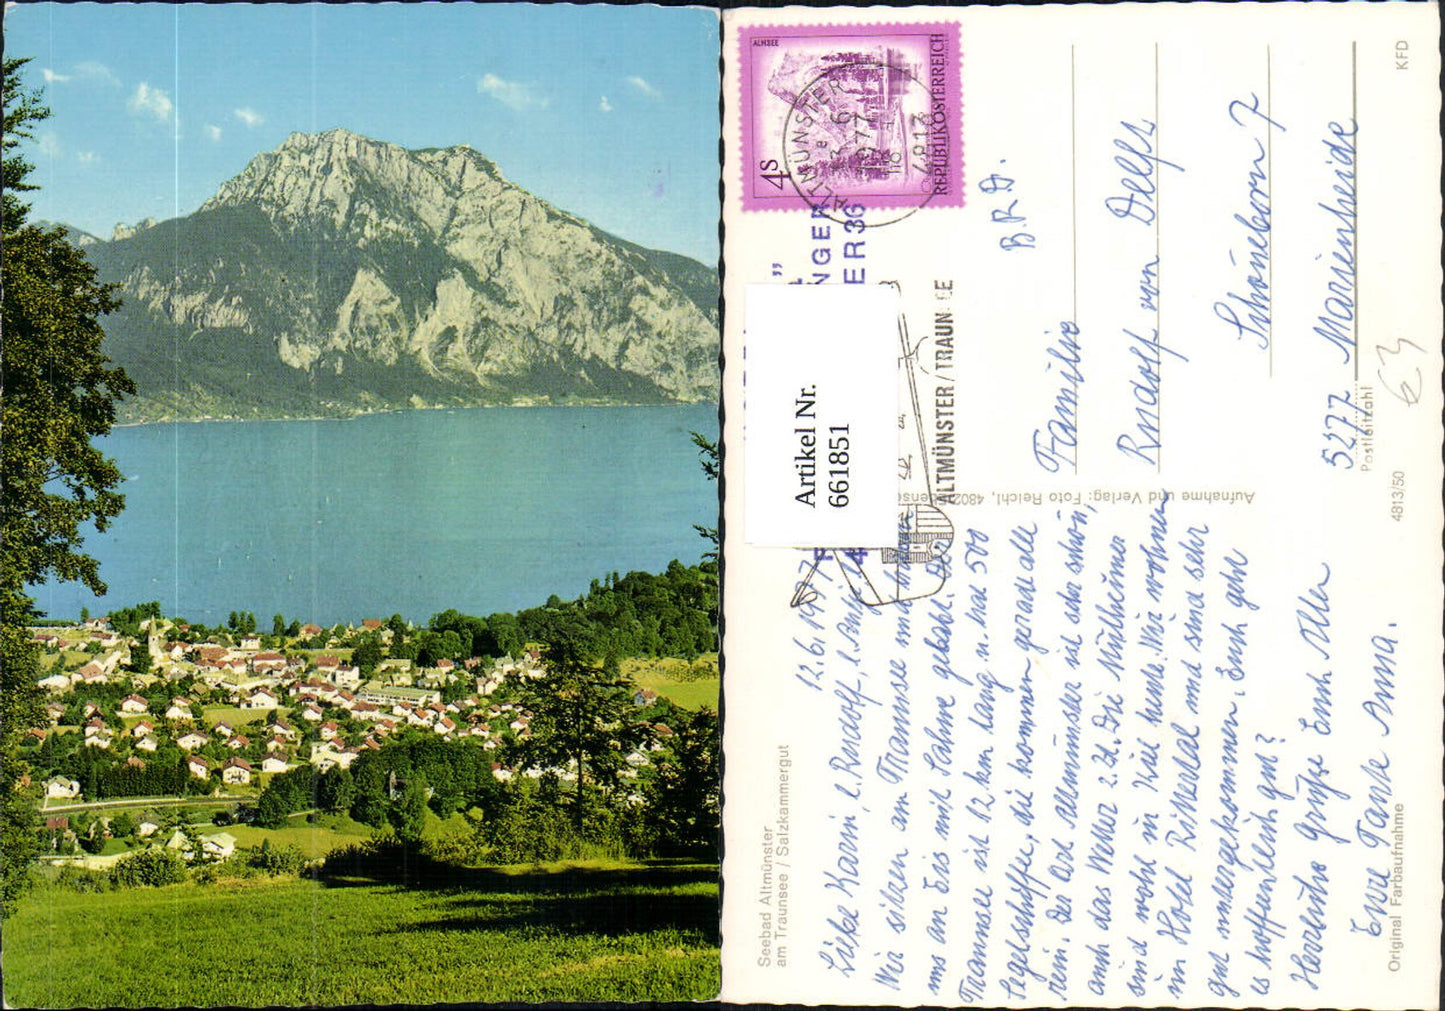 ALMSEE
4 S
REPUBLIK ÖSTERREICH
ALTMÜNSTER
1977
4813
ALTMÜNSTER/TRAUNSEE
Artikel Nr.
661851
Seebad Altmünster
am Traunsee / Salzkammergut
12.6.1977
Liebe Karin, l. Rudolf, l. Antje!
Wir sitzen am Traunsee und haben
uns an Eis mit Sahne gelabt. Der
Traunsee ist 12 km lang u. hat 500
Segelschiffe, die kommen gerade alle
rein. Der Ort Altmünster ist sehr schön,
auch das Wetter z. Zt. Die Mülheimer
sind wohl in Kiel heute. Wir wohnen
im Hotel Rittertal und sind sehr
gut untergekommen. Euch geht
es hoffentlich gut?
Herzliche Grüße Euch Allen
Eure Tante Anna.
Original Farbaufnahme
Aufnahme und Verlag: Foto Reichl, 4802
B.R.D.
Familie
Rudolf von Delfs
Schöneborn 7
5277 Marienheide
Postleitzahl
4813/50
KFD
63